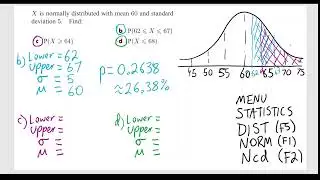 X is normally distributed with mean 60 and standard
deviation 5. Find:
b P(62 ⩽ X ⩽ 67)
c P(X ⩾ 64)
d P(X ⩽ 68)
b) Lower = 62
Upper = 67
σ = 5
μ = 60
p = 0.2638
≈ 26.38%
45 55 60 65 70 75
c) Lower =
Upper =
σ =
μ =
d) Lower =
Upper =
σ =
μ =
MENU
STATISTICS
DIST (F5)
NORM (F1)
Ncd (F2)